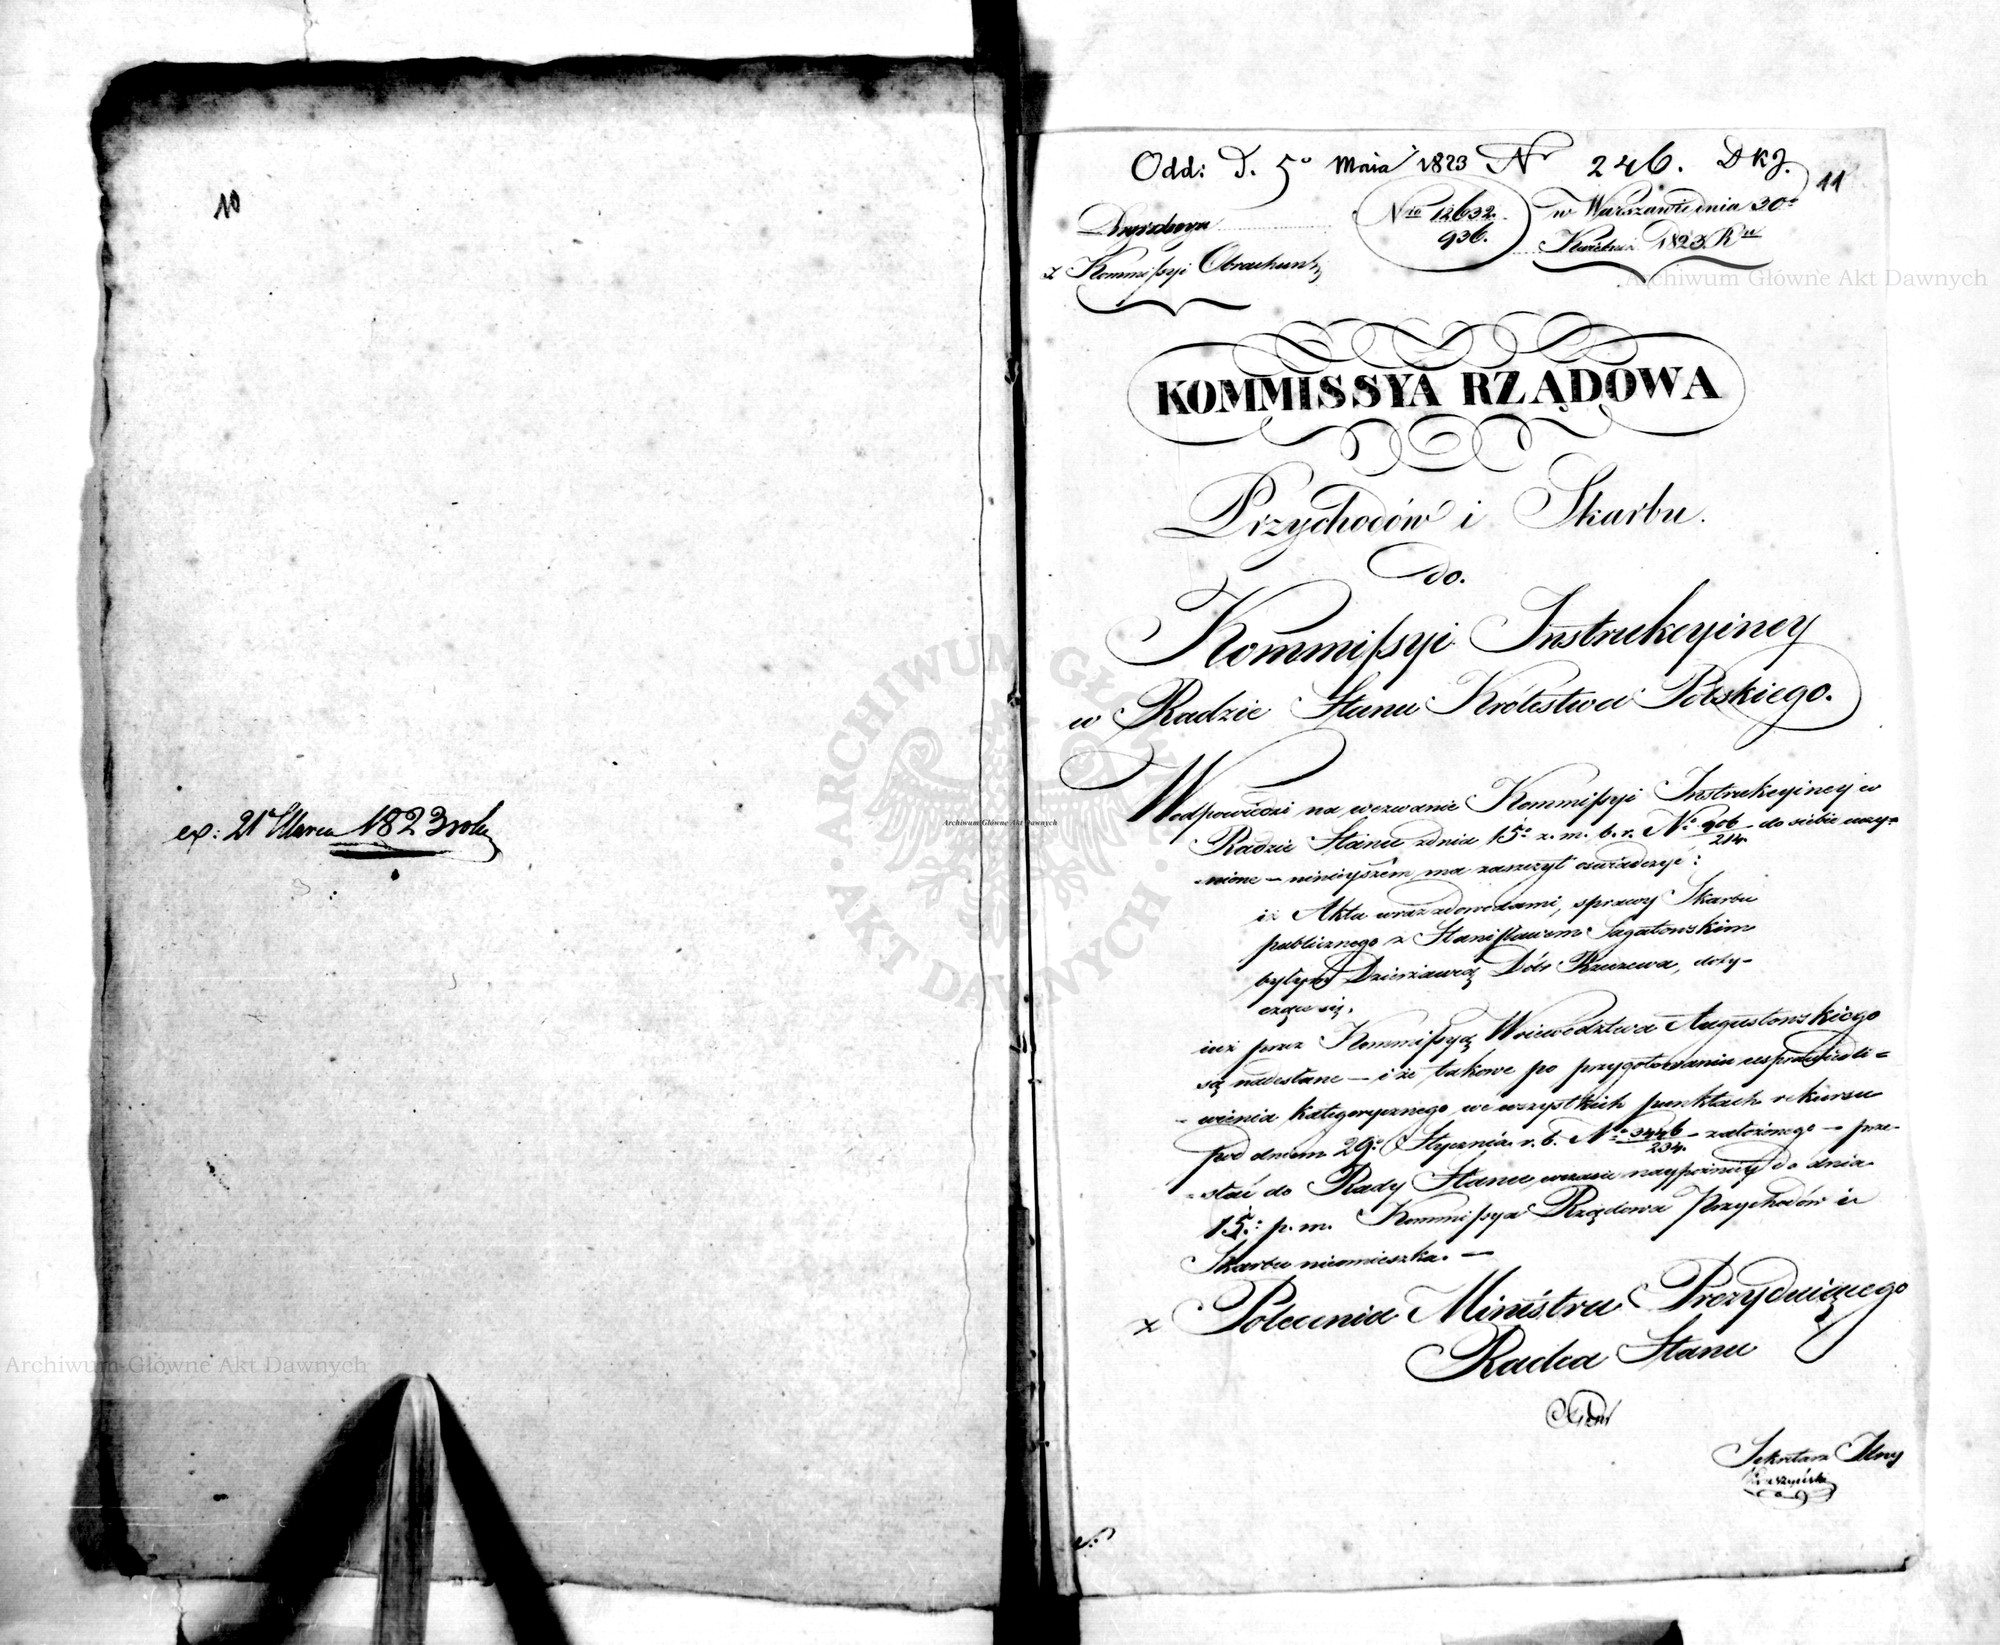 10
ex: 21 Marca 1823 roku
Odd: D. 5º Maia 1823 Nr 246. DKJ.
11
Nro 12632.
936.
w Warszawie dnia 30º
Kwietnia 1823 Ru
z Kommissyi Obrachun
KOMMISSYA RZĄDOWA
Przychodów i Skarbu.
do.
Kommissyi Instrukcyiney
w Radzie Stanu Królestwa Polskiego.
W odpowiedzi na wezwanie Kommissyi Instrukcyiney w
Radzie Stanu z dnia 15º z. m. b. r. Nº 906/214 do siebie uczy-
-nione – ninieyszem ma zaszczyt oświadczyć:
iż Akta wraz z dowodami, sprawy Skarbu
publicznego z Stanisławem Sagatowskim
byłym Dzierżawcą Dóbr, doty-
czące się,
iuż przez Kommissyą Woiewództwa Augustowskiego
są nadesłane – i że takowe po przygotowaniu usprawiedli=
-wienia kategorycznego we wszystkich punktach rekursu
pod dniem 29º Stycznia r. b. Nº 3446/234 założonego – prze-
-słać do Rady Stanu, w czasie naypóźniey do dnia
15: p. m. Kommissya Rządowa Przychodów i
Skarbu nieomieszka. –
z Polecenia Ministra Prezyduiącego
Radca Stanu
Sekretarz Jlny